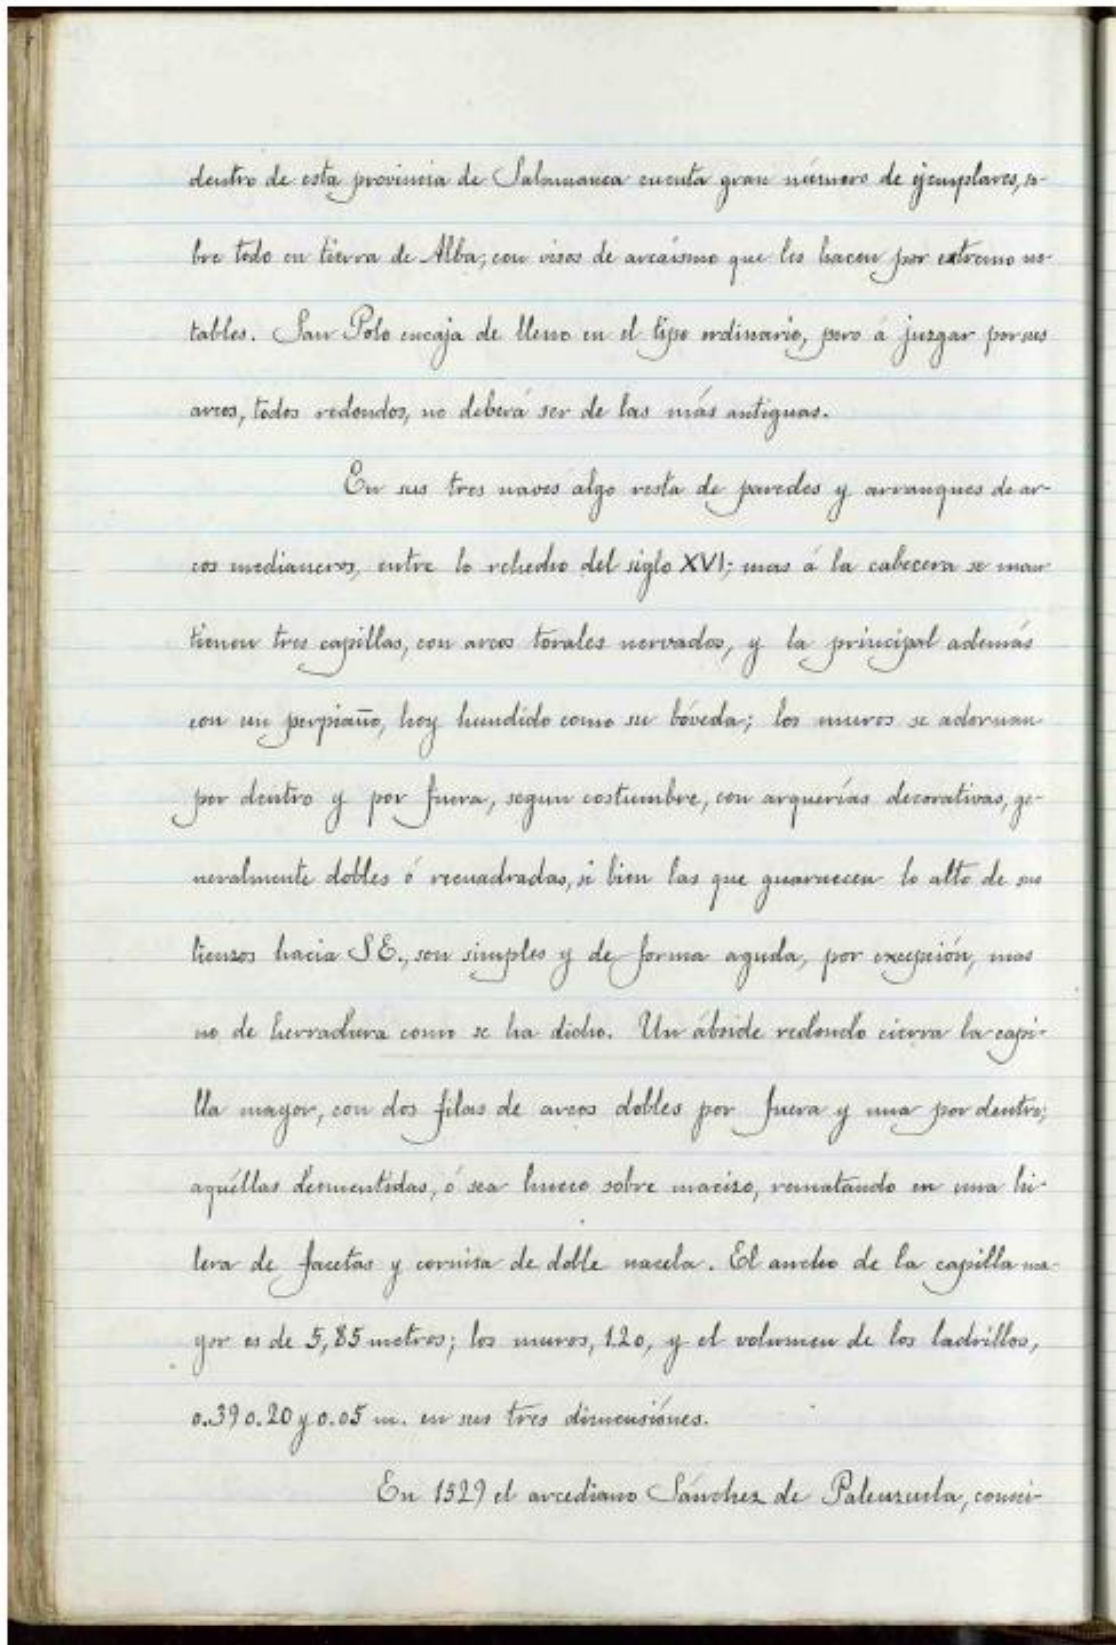 dentro de esta provincia de Salamanca cuenta gran número de ejemplares, so-
bre todo en tierra de Alba; con visos de arcaismo que los hacen por extremo no-
tables. San Polo encaja de lleno en el tipo ordinario, pero á juzgar por sus
arcos, todos redondos, no deberá ser de las más antiguas.
En sus tres naves algo resta de paredes y arranques de ar-
cos medianeros, entre lo rehecho del siglo XVI; mas á la cabecera se man
tienen tres capillas, con arcos torales nervados, y la principal además
con un perpiaño, hoy hundido como su bóveda; los muros se adornan
por dentro y por fuera, segun costumbre, con arquerías decorativas, ge-
neralmente dobles ó recuadradas, si bien las que guarnecen lo alto de sus
lienzos hacia SE., son simples y de forma aguda, por excepción, mas
no de herradura como se ha dicho. Un ábside redondo cierra la capi-
lla mayor, con dos filas de arcos dobles por fuera y una por dentro;
aquéllas desmentidas, ó sea hueco sobre macizo, rematando en una hi-
lera de facetas y cornisa de doble nacela. El ancho de la capilla ma-
yor es de 5,85 metros; los muros, 1.20, y el volumen de los ladrillos,
0.39 0.20 y 0.05 m. en sus tres dimensiónes.
En 1529 el arcediano Sánchez de Palenzuela, consi-